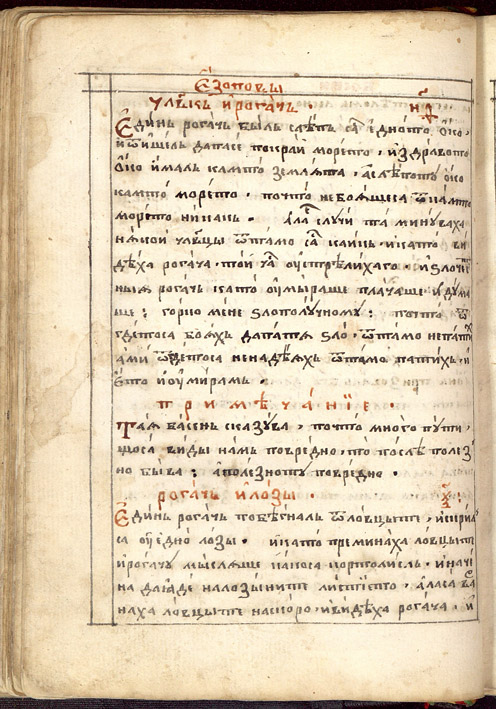 Езоповы
Улвѣкь и рогачь .
Единь рогачь быль слѣпь са едното око,
и ѿишель да пасе покрай морето, и здравото
око ималь камто землята, а слѣпото око
камто морето . почто небоящеса ѿ камто
морето никакь . ала случи та минуваха
някои ловцы ѿтамо са каикь, и като ви
дѣха рогача, тои уистрѣлихаго . и злочест
ныя рогачь като оумираше плачаше и дума
ше : горко мене злополучному : почто ѿ
гдетоса бояхь да патя зло, ѿтамо непатихь
ами ѿгдетоса ненадѣяхь ѿтамо патихь, и
ето и оумирамь .
примѣчанїе .
Тая басень сказува, почто много пути
щоса виды намь повредно, то послѣ полез
но быва : а полезното повредно .
рогачь и лозы .
Единь рогачь побѣгналь ѿ ловцыте, и скрил
са оу едно лозы . и като преминаха ловцыте
и рогачу мысляще какоса кортолисль, и начя
на да яде на лозыните листието, а ласа ва
наха ловцыте наскоро, и видѣха рогача, и